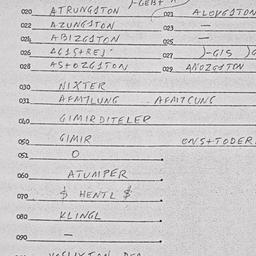 020 ATRUNGSTON 021 ALOVGSTON
022 AZUNGSTON 023 —
024 ABIZGSTON 025 —
026 027 )-GIS
028 ASTOZGSTON 029 ANOZGSTON
030 NIXTER
031 AFMTLUNG - AFMTCUNG
040 GIMIRDITELEP
050 GIMIR ONSTODER
051 O
060 ATUMPER
070 $ HENTL $
080 KLINGL
090 —